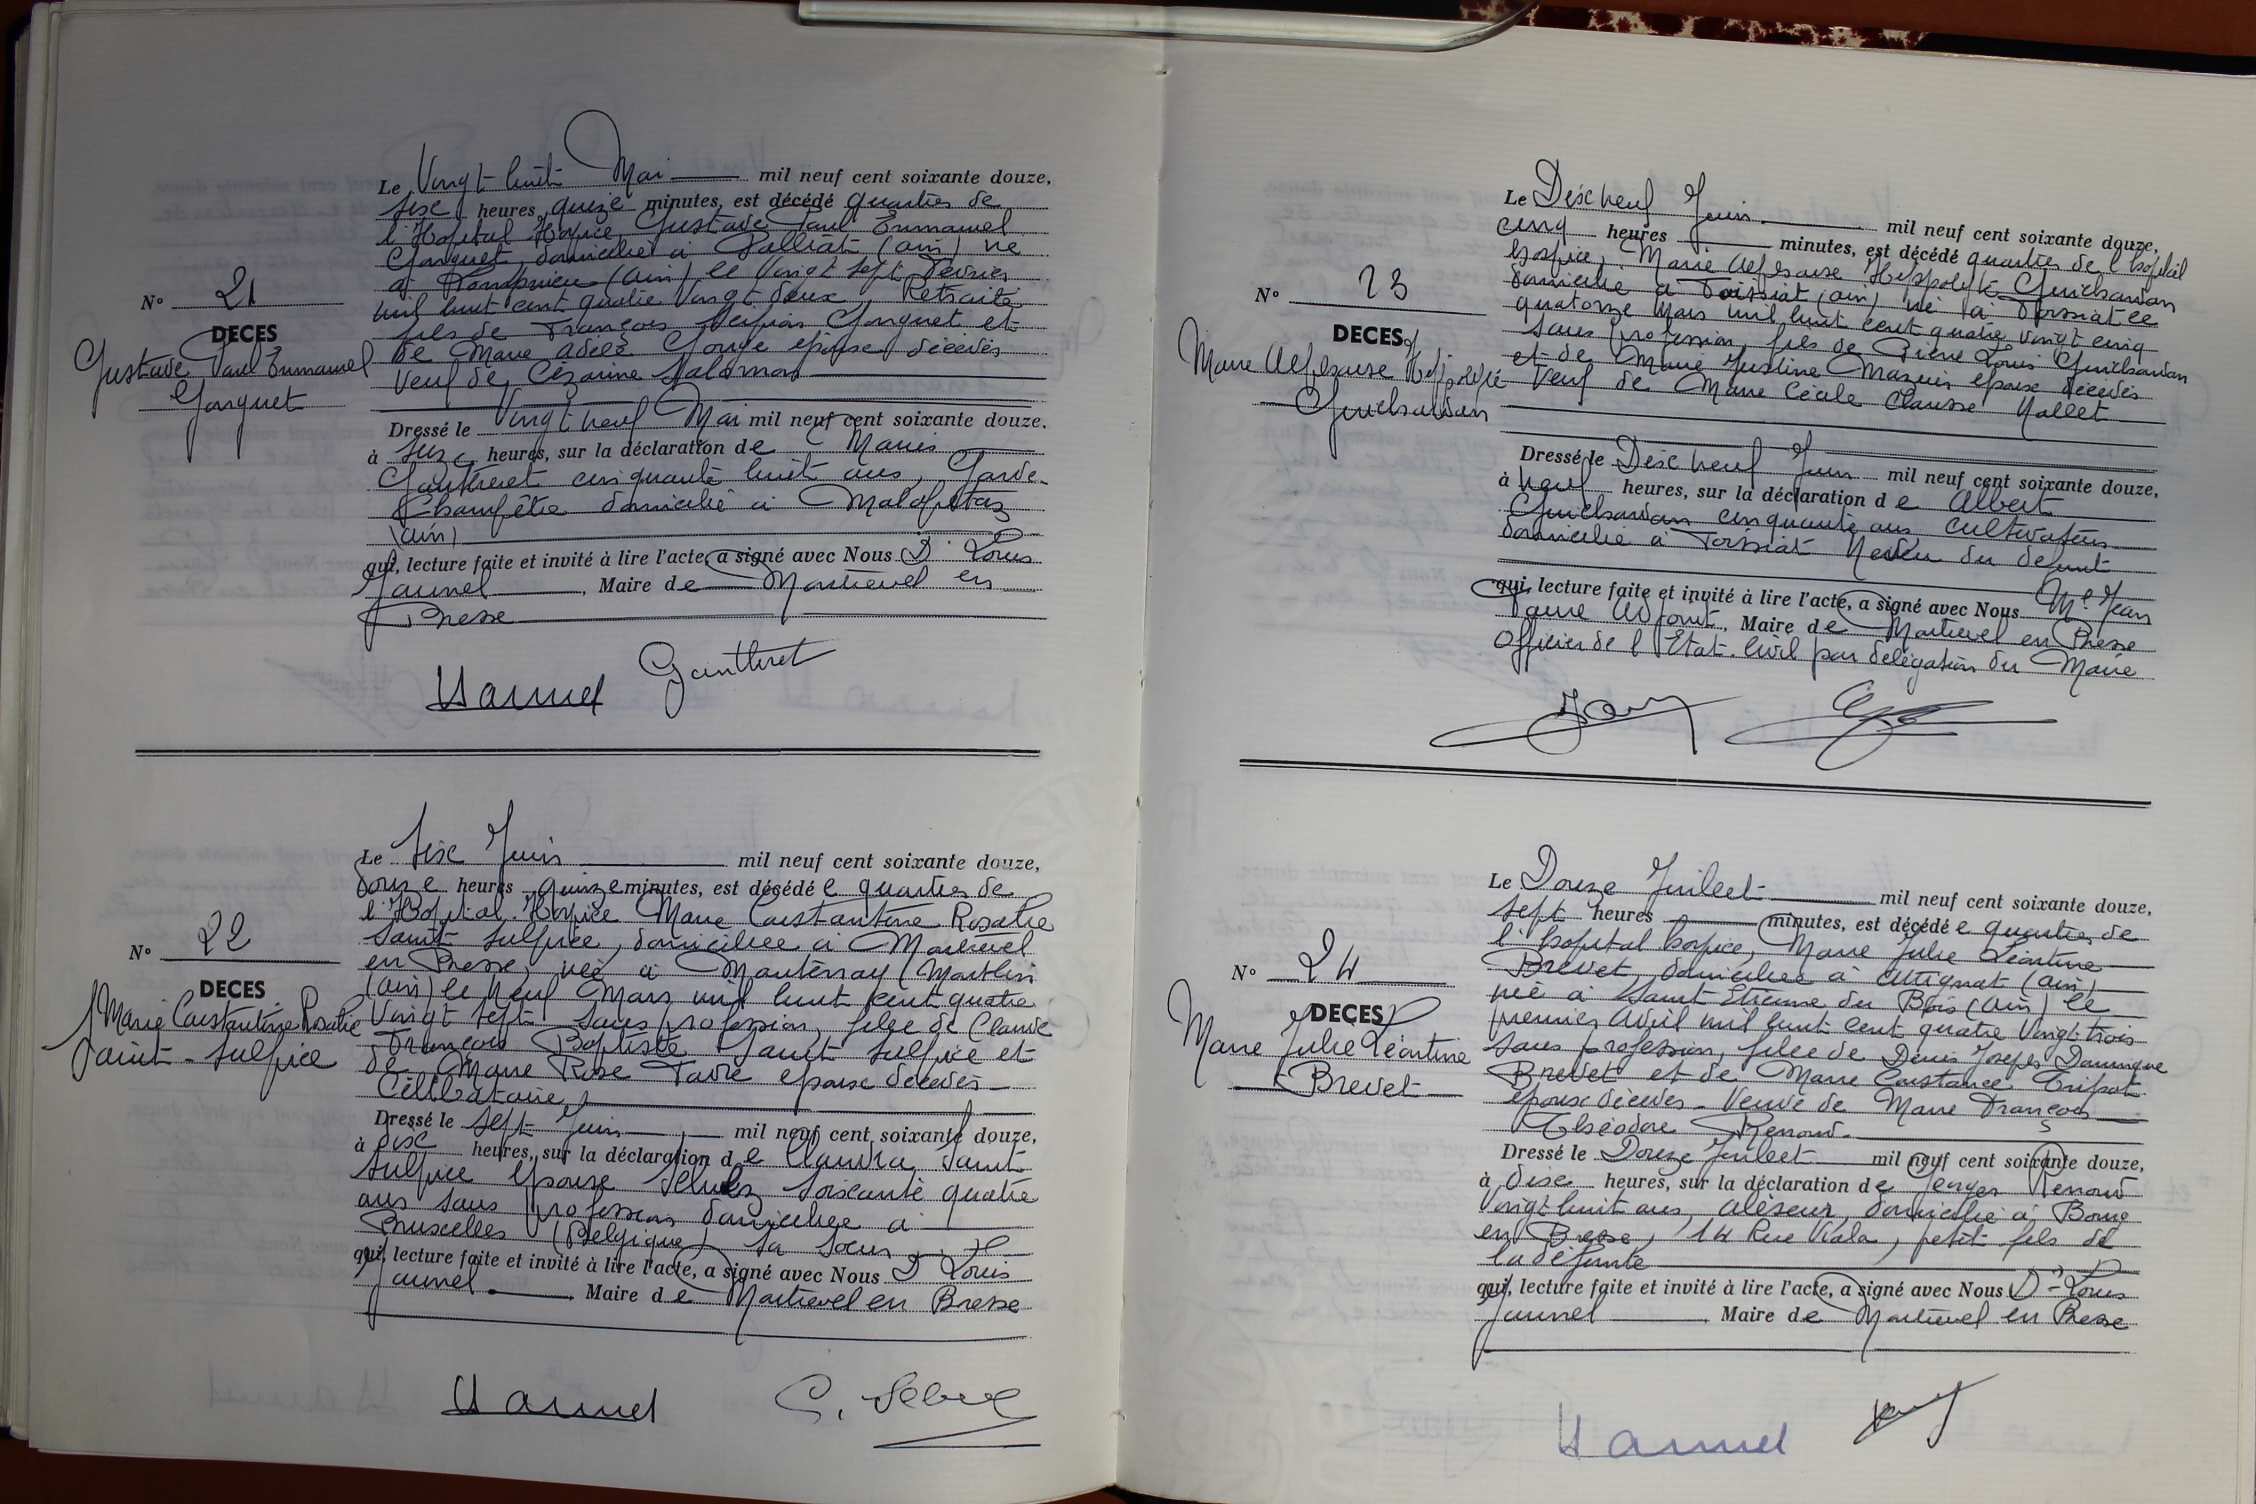 N° 21
DECES
Gustave Paul Emmanuel
Gonguet
Le Vingt huit Mai mil neuf cent soixante douze,
six heures quinze minutes, est décédé quartier de
l'Hopital Hospice, Gustave Paul Emmanuel
Gonguet, domicilié à (ain) né
à (ain) le Vingt sept Février
mil huit cent quatre Vingt deux, Retraité
fils de François Gonguet et
de Marie épouse décédés
Veuf de Cézarine Salomon
Dressé le Vingt neuf Mai mil neuf cent soixante douze.
à heures, sur la déclaration de
Gauthret cinquante huit ans, Garde-
Champêtre domicilié à Malafretaz
(ain)
qui, lecture faite et invité à lire l'acte, a signé avec Nous Dr Louis
Jaunel, Maire de Montrevel en
Bresse
Gauthret
N° 22
DECES
Marie Constantine Rosalie
Saint-Sulpice
Le Six Juin mil neuf cent soixante douze,
douze heures quinze minutes, est décédée quartier de
l'Hopital-Hospice Marie Constantine Rosalie
Saint Sulpice, domiciliée à Montrevel
en Bresse, née à Mantenay Montlin
(ain) le Neuf Mars mil huit cent quatre
Vingt sept sans profession, fille de Claude
François Baptiste Saint Sulpice et
de Marie Rose Favre epoux décédés
Célibataire,
Dressé le Sept Juin mil neuf cent soixante douze,
à dix heures, sur la déclaration de Claudia Saint
Sulpice épouse soixante quatre
ans sans profession domiciliée à
Bruxelles (Belgique) sa soeur
qui, lecture faite et invité à lire l'acte, a signé avec Nous Dr Louis
Jaunel Maire de Montrevel en Bresse
N° 23
DECES
Marie Alphonse Hippolyte
Guichardan
Le Dix neuf Juin mil neuf cent soixante douze,
cinq heures minutes, est décédé quartier de l'hopital
hospice, Marie Alphonse Hippolyte Guichardan
domicilié à Foissiat (ain) né à Foissiat le
quatorze Mars mil huit cent quatre Vingt cinq
sans profession, fils de Pierre Louis Guichardan
et de Marie Justine Mazuir epoux décédés
Veuf de Marie Cécile Clarisse Nallet
Dressé le Dix neuf Juin mil neuf cent soixante douze,
à neuf heures, sur la déclaration de Albert
Guichardan cinquante ans, cultivateur
domicilié à Foissiat Neveu du defunt
qui, lecture faite et invité à lire l'acte, a signé avec Nous Mr Jean
Adjoint, Maire de Montrevel en Bresse
Officier de l'Etat-Civil par délégation du Maire
N° 24
DECES
Marie Julie Léontine
Brevet
Le Douze Juillet mil neuf cent soixante douze,
sept heures minutes, est décédée quartier de
l'hopital hospice, Marie Julie Léontine
Brevet, domiciliée à Attignat (ain)
née à Saint Etienne du Bois (ain) le
premier Avril mil huit cent quatre Vingt-trois
sans profession, fille de Denis Joseph Dominique
Brevet et de Marie Constance Tripot
epoux décédés - Veuve de Marie François
Théodore Renoud.
Dressé le Douze Juillet mil neuf cent soixante douze,
à dix heures, sur la déclaration de Renoud
Vingt huit ans, aléseur, domicilié à Bourg
en Bresse, 14 Rue Viala, petit fils de
la défunte
qui, lecture faite et invité à lire l'acte, a signé avec Nous Dr Louis
Jaunel Maire de Montrevel en Bresse